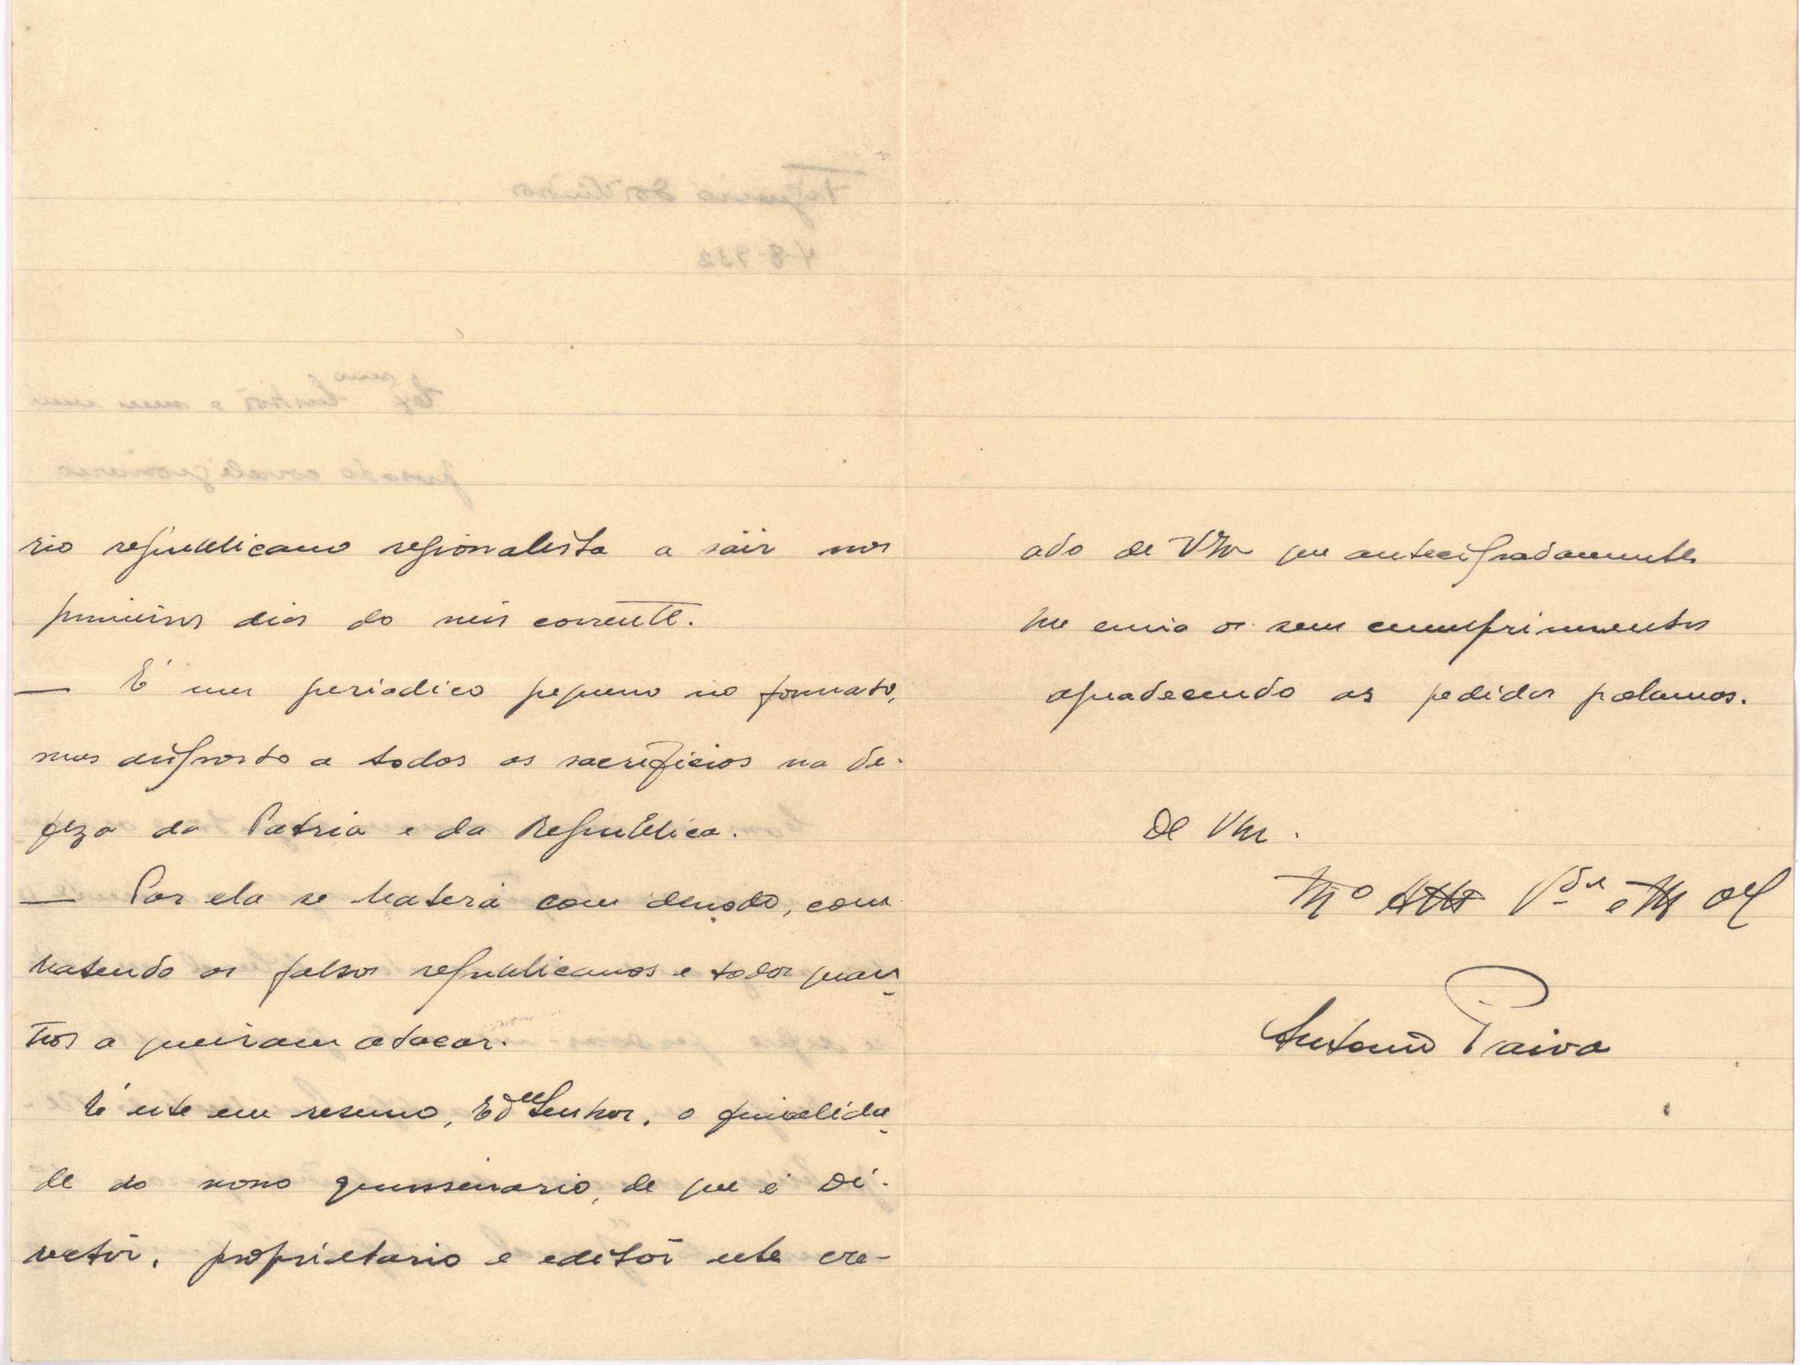 rio republicano regionalista a sair nos
primeiros dias do mês corrente.
— É um periodico pequeno no formato,
mas disposto a todos os sacrificios na de-
feza da Patria e da Republica.
— Por ela se baterá com denodo, com
batendo os falsos republicanos e todos quan-
tos a queiram atacar.
É este em resumo, Senhor, a finalida-
de do nosso quinsenario, de que é Di-
rectôr, proprietario e editôr este cre-
ado de V. que antecipadamente
lhe envia os seus cumprimentos
agradecendo as pedidas palavras.
De V.
Mº Attº V e
Antonio Paiva